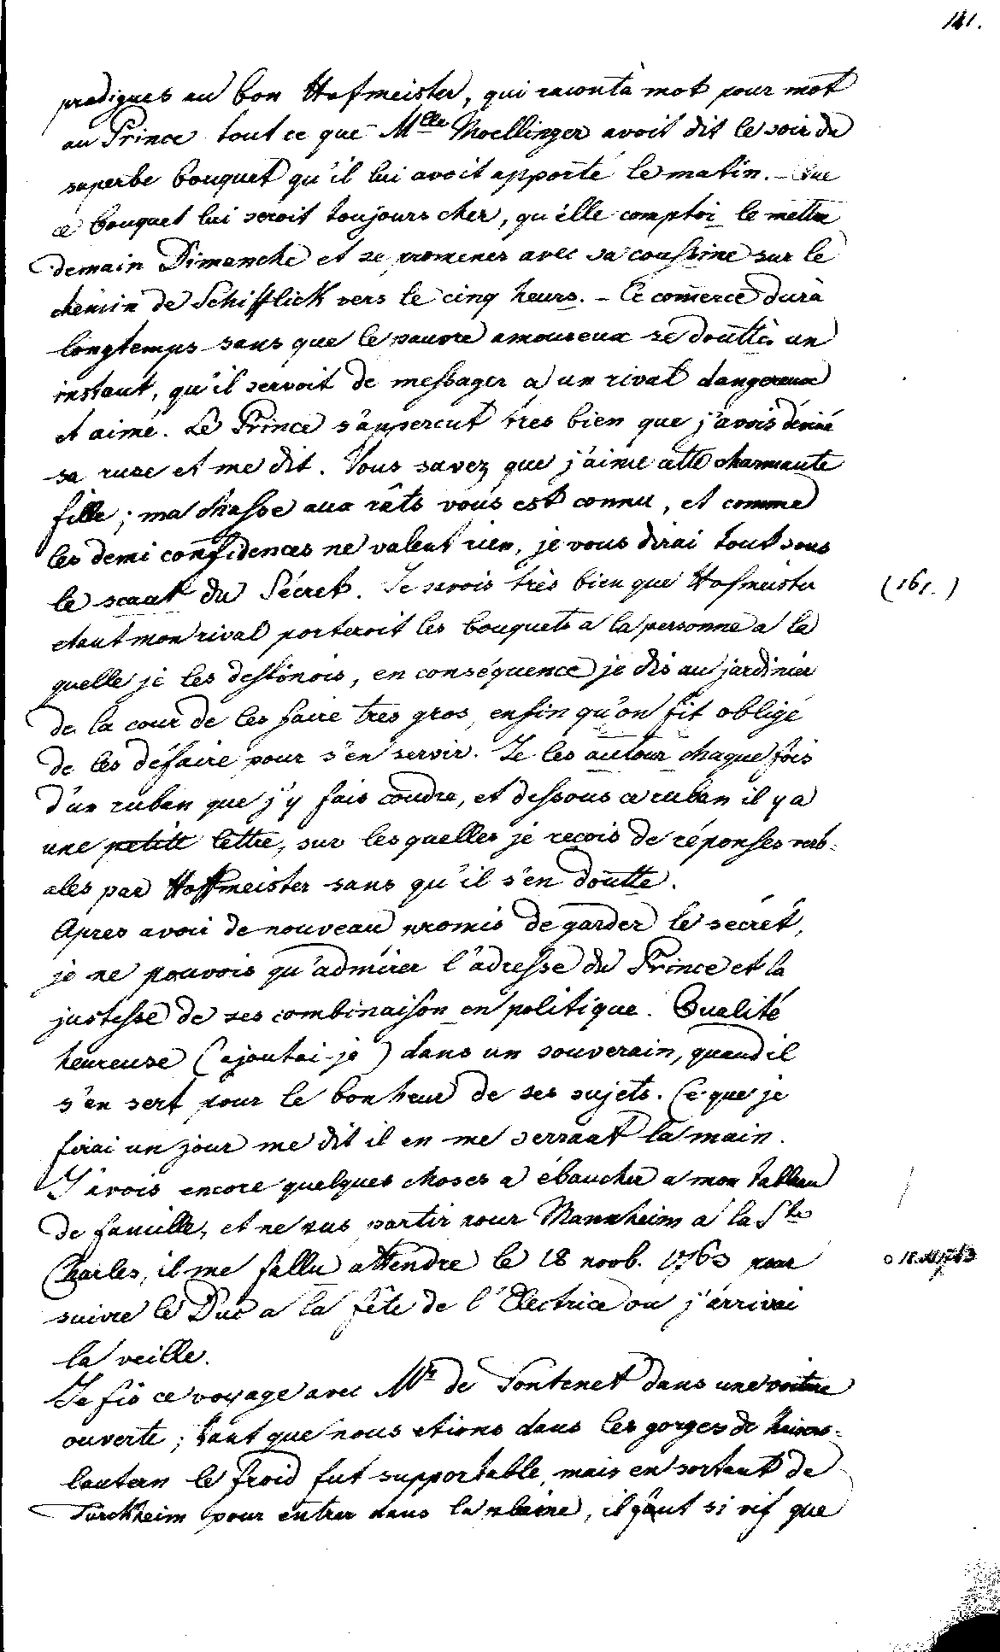 141.
prodigues au bon Hofmeister, qui raconta mot pour mot
au Prince tout ce que Mlle Moellinger avoit dit le soir du
superbe bouquet qu'il lui avoit apporté le matin. - Que
ce bouquet lui seroit toujours cher, qu'elle comptoi le mettre
demain Dimanche et se promener avec sa coussine sur le
chemin de Schifflick vers le cinq heurs. - Ce comerce dura
longtemps sans que le pauvre amoureux se doutta un
instant, qu'il servoit de messager a un rival dangereux
et aimé. Le Prince s'apercut tres bien que j'avois déviné
sa ruse et me dit. Vous savez que j'aime cette charmante
fille; ma chasse aux râts vous est connu, et comme
les demi confidences ne valent rien, je vous dirai tout sous
le sceaut du Sécret. Je savois très bien que Hofmeister
etant mon rival porteroit les bouquets a la personne a la
(161.)
quelle je les destinois, en conséquence je dis au jardinier
de la cour de les faire tres gros, enfin qu'on fit obligé
de les défaire pour s'en servir. Je les autour chaque fois
d'un ruban que j'y fais coudre, et dessous ce ruban il y a
une petite lettre, sur les quelles je recois de réponses verb-
ales par Hoffmeister sans qu'il s'en doutte.
Apres avoir de nouveau promis de garder le secret,
je ne pouvois qu'admirer l'adresse du Prince et la
justesse de ses combinaison en politique. Qualité
heureuse (ajoutai-je) dans un souverain, quand il
s'en sert pour le bonheur de ses sujets. Ce que je
firai un jour me dit il en me serrant la main.
J'avois encore quelques choses a ébaucher a mon tableau
de famille, et ne pus partir pour Mannheim a la Ste
Charles, il me fallu attendre le 18 novb. 1763 pour
o 18. XI 1763
suivre le Duc a la fête de l'Electrice ou j'arrivai
la veille.
Je fis ce voyage avec Mr de Fontenet dans une voiture
ouverte; tant que nous etions dans les gorges de Keisers-
lautern le froid fut supportable, mais en sortant de
Türckheim pour entrer dans la pleine, il fut si vif que